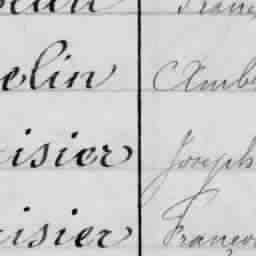 elin Amb
isier Joseph
isier Franço